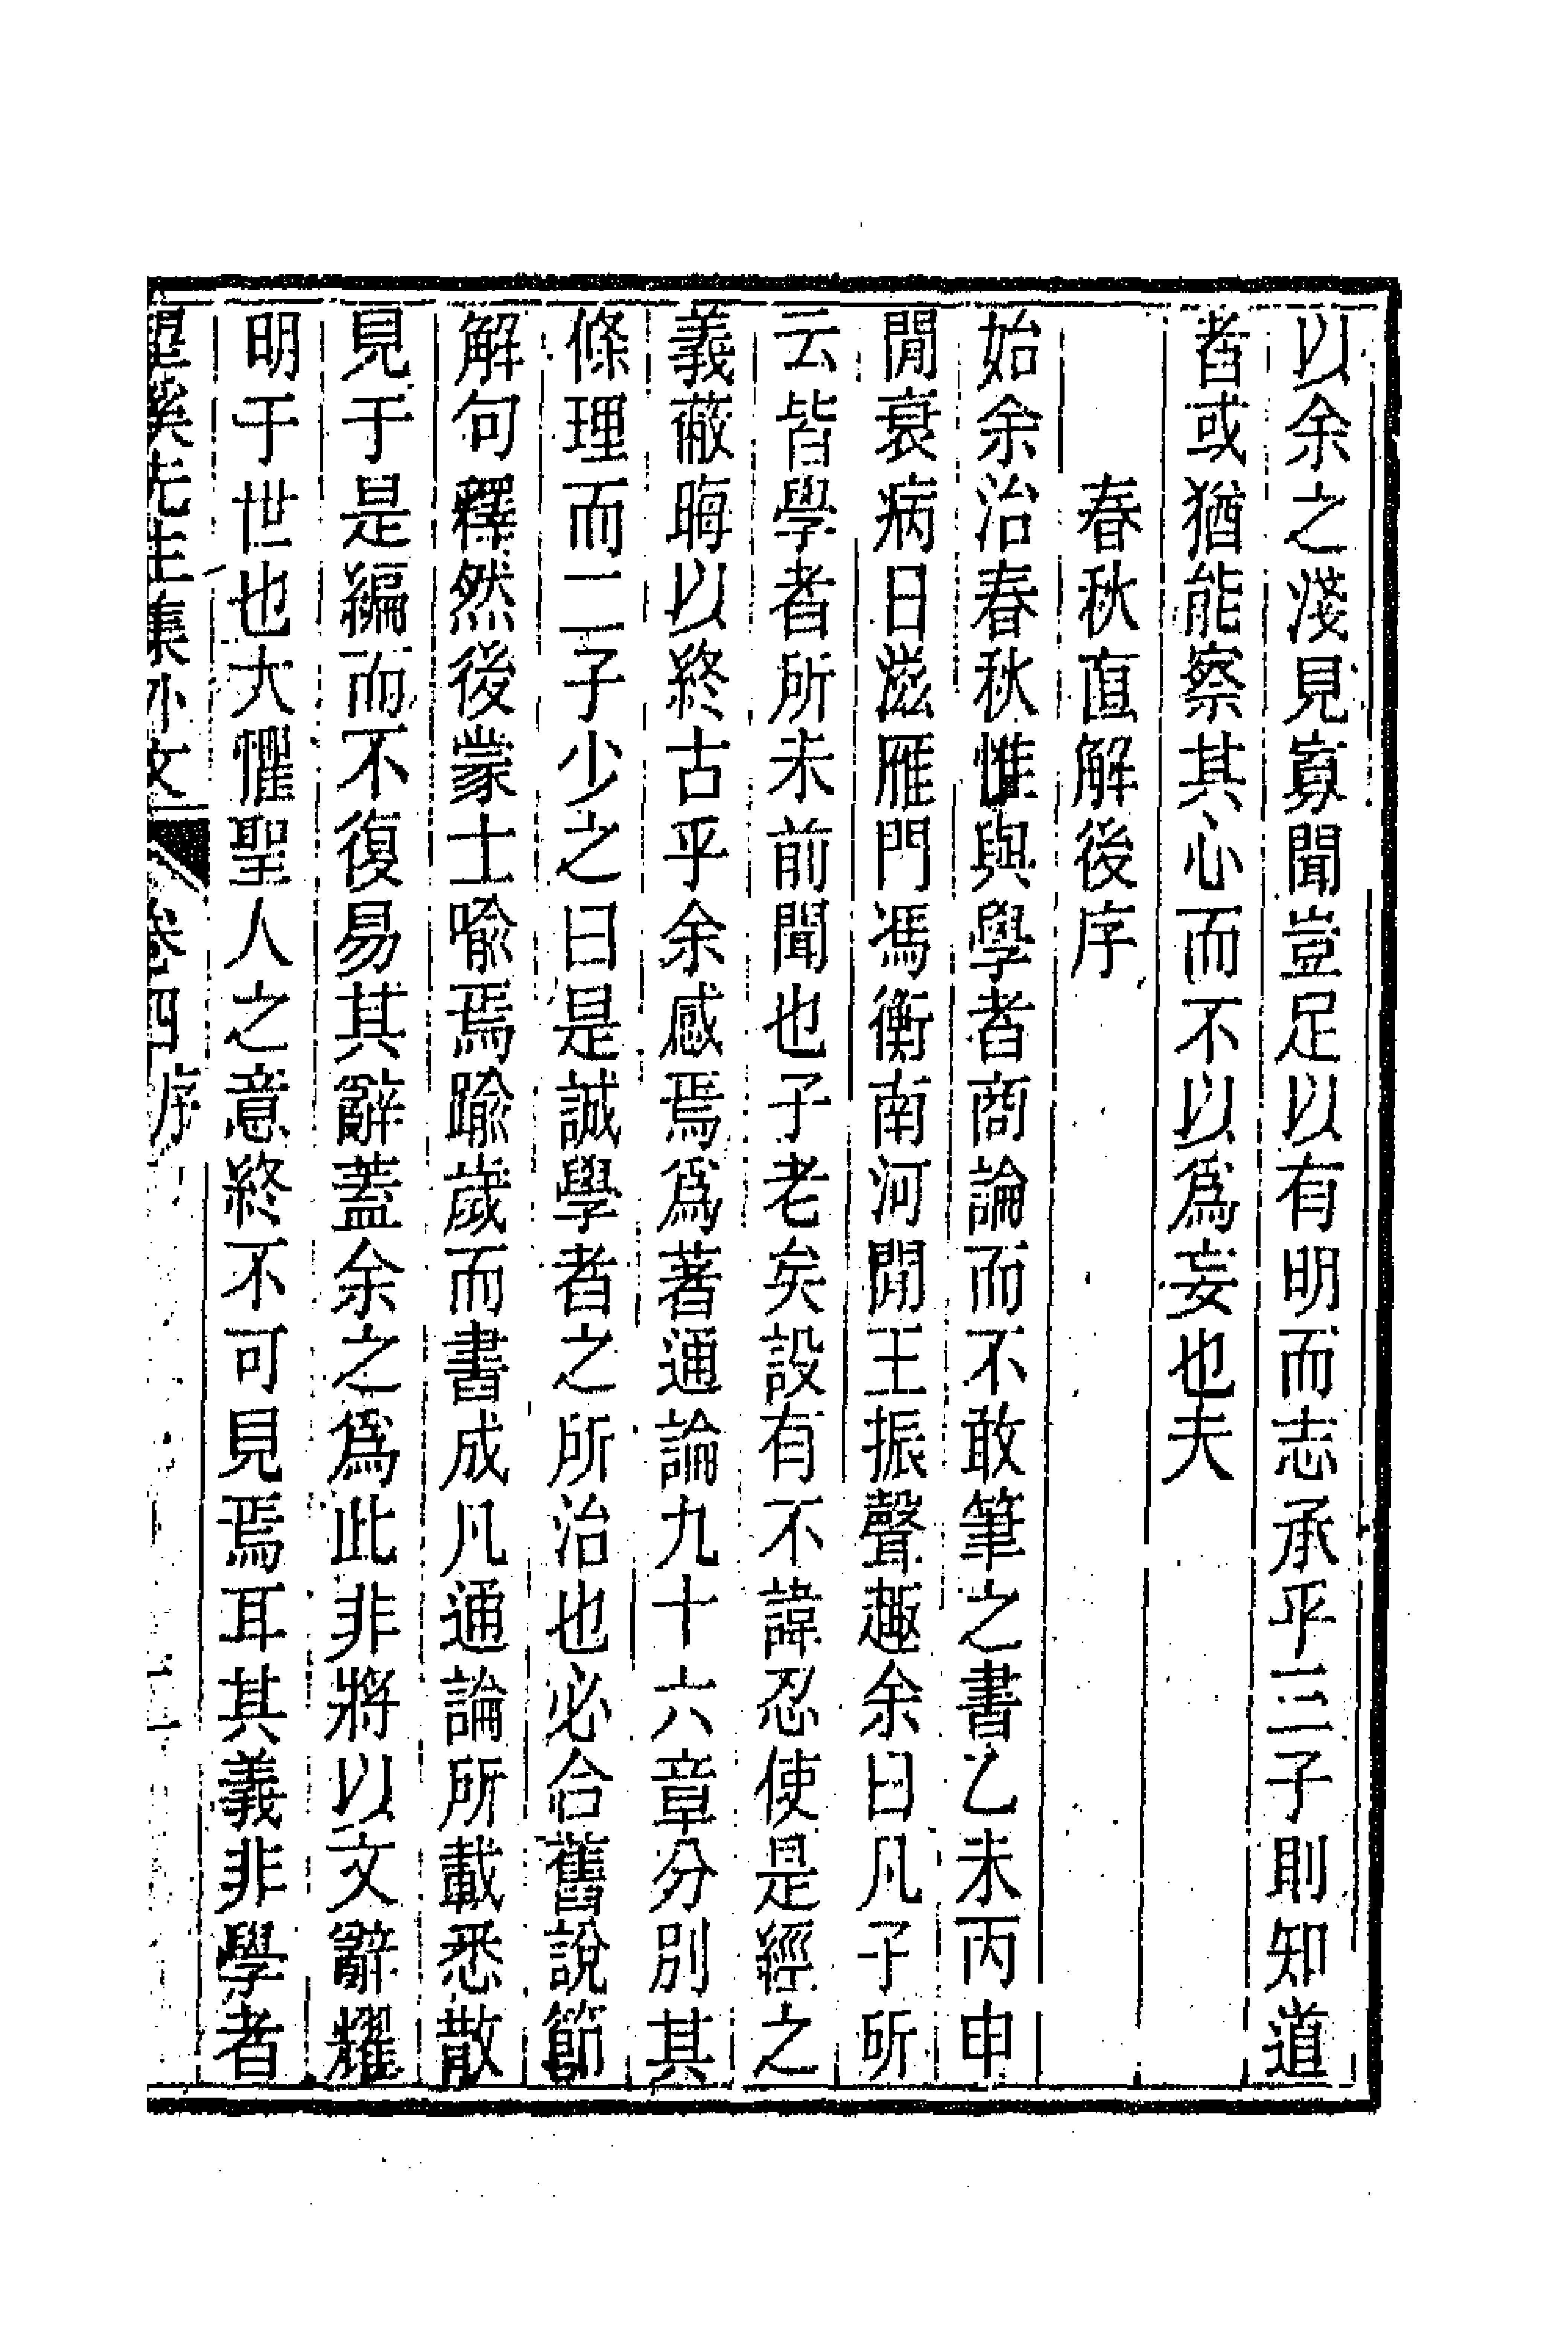 以余之淺見寡聞豈足以有明而志承乎三子則知道
者或猶能察其心而不以爲妄也夫
春秋直解後序
始余治春秋惟與學者商論而不敢筆之書乙未丙申
閒衰病日滋雁門馮衡南河閒王振聲趣余曰凡子所
云皆學者所未前聞也子老矣設有不諱忍使是經之
義蔽晦以終古乎余感焉爲著通論九十六章分別其
條理而二子少之曰是誠學者之所治也必合舊說節
解句釋然後蒙士喻焉踰歲而書成凡通論所載悉散
見于是編而不復易其辭蓋余之爲此非將以文辭耀
明于世也大懼聖人之意終不可見焉耳其義非學者
望溪先生集外文 卷四 序